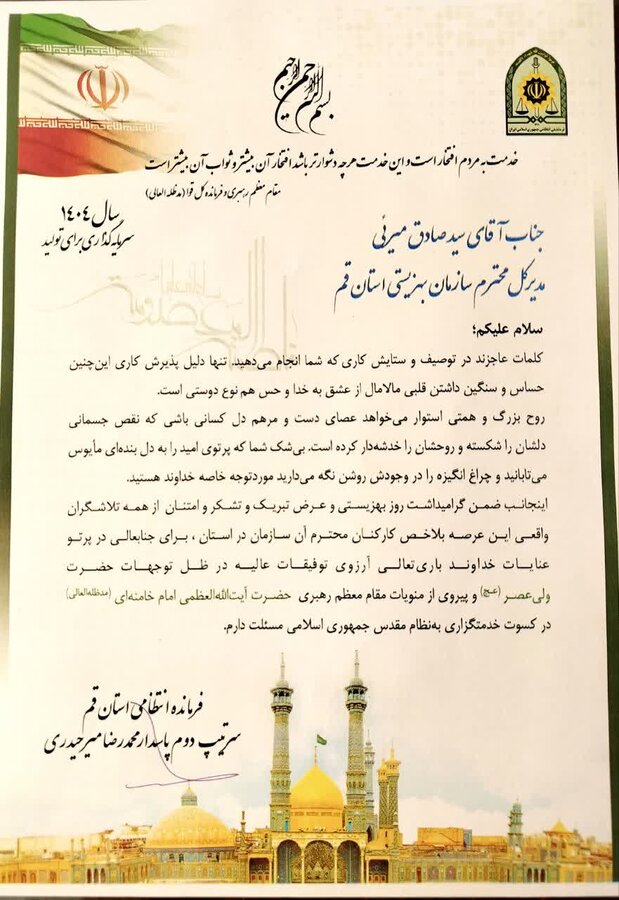 بسم الله الرحمن الرحیم
خدمت به مردم افتخار است و این خدمت هرچه دشوارتر باشد افتخار آن بیشتر و ثواب آن بیشتر است
مقام معظم رهبری و فرمانده کل قوا (مدظله العالی)
سال ۱۴۰۴
سرمایه‌گذاری برای تولید
جناب آقای سید صادق میرنی
مدیرکل محترم سازمان بهزیستی استان قم
سلام علیکم؛
کلمات عاجزند در توصیف و ستایش کاری که شما انجام می‌دهید. تنها دلیل پذیرش کاری این‌چنین
حساس و سنگین داشتن قلبی مالامال از عشق به خدا و حس هم نوع دوستی است.
روح بزرگ و همتی استوار می‌خواهد عصای دست و مرهم دل کسانی باشی که نقص جسمانی
دلشان را شکسته و روحشان را خدشه‌دار کرده است. بی‌شک شما که پرتوی امید را به دل بنده‌ای مأیوس
می‌تابانید و چراغ انگیزه را در وجودش روشن نگه می‌دارید موردتوجه خاصه خداوند هستید.
اینجانب ضمن گرامیداشت روز بهزیستی و عرض تبریک و تشکر و امتنان از همه تلاشگران
واقعی این عرصه بلاخص کارکنان محترم آن سازمان در استان ، برای جنابعالی در پرتو
عنایات خداوند باری‌تعالی آرزوی توفیقات عالیه در ظل توجهات حضرت
ولی‌عصر (عج) و پیروی از منویات مقام معظم رهبری حضرت آیت‌الله‌العظمی امام خامنه‌ای (مدظله‌العالی)
در کسوت خدمتگزاری به‌نظام مقدس جمهوری اسلامی مسئلت دارم.
فرمانده انتظامی استان قم
سرتیپ دوم پاسدار محمدرضا میرحیدری